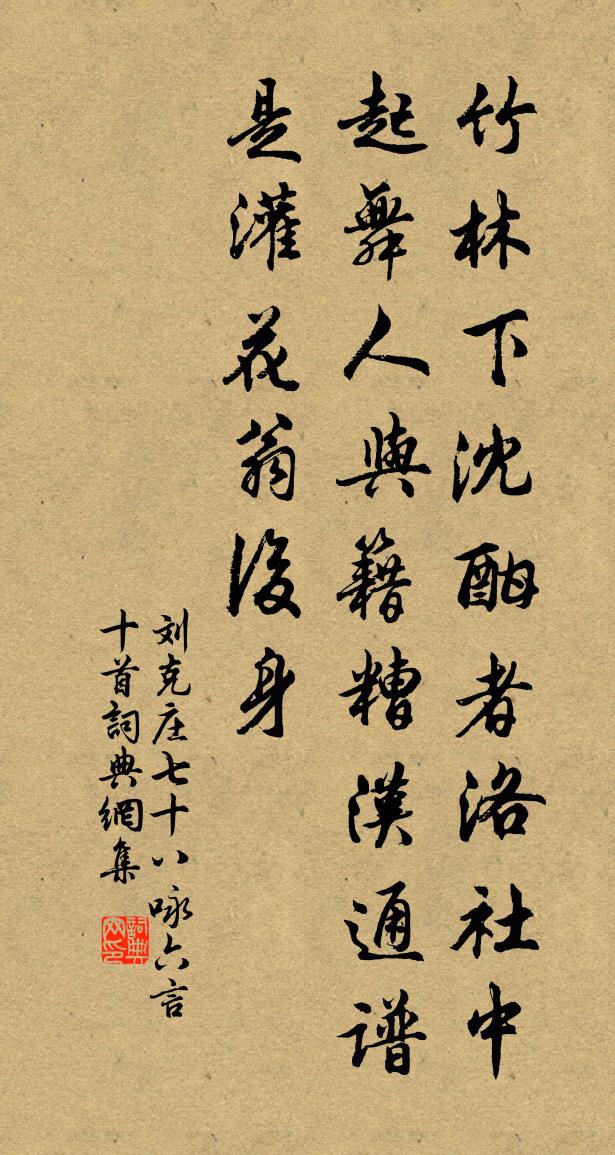 竹林下沈酣者洛社中
起舞人與籍糟漢通譜
是灌花翁後身
刘克庄七十八咏六言
十首詞典網集
詞典网印